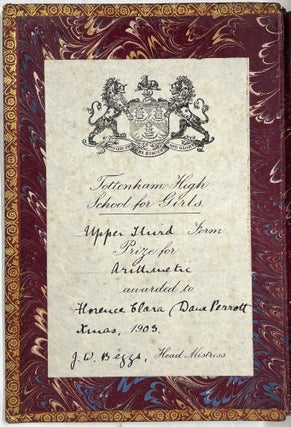 Tottenham High
School for Girls
Upper Third Form
Prize for
Arithmetic
awarded to
Florence Clara Dane Perrott
Xmas, 1903
J. W. Biggs, Head Mistress